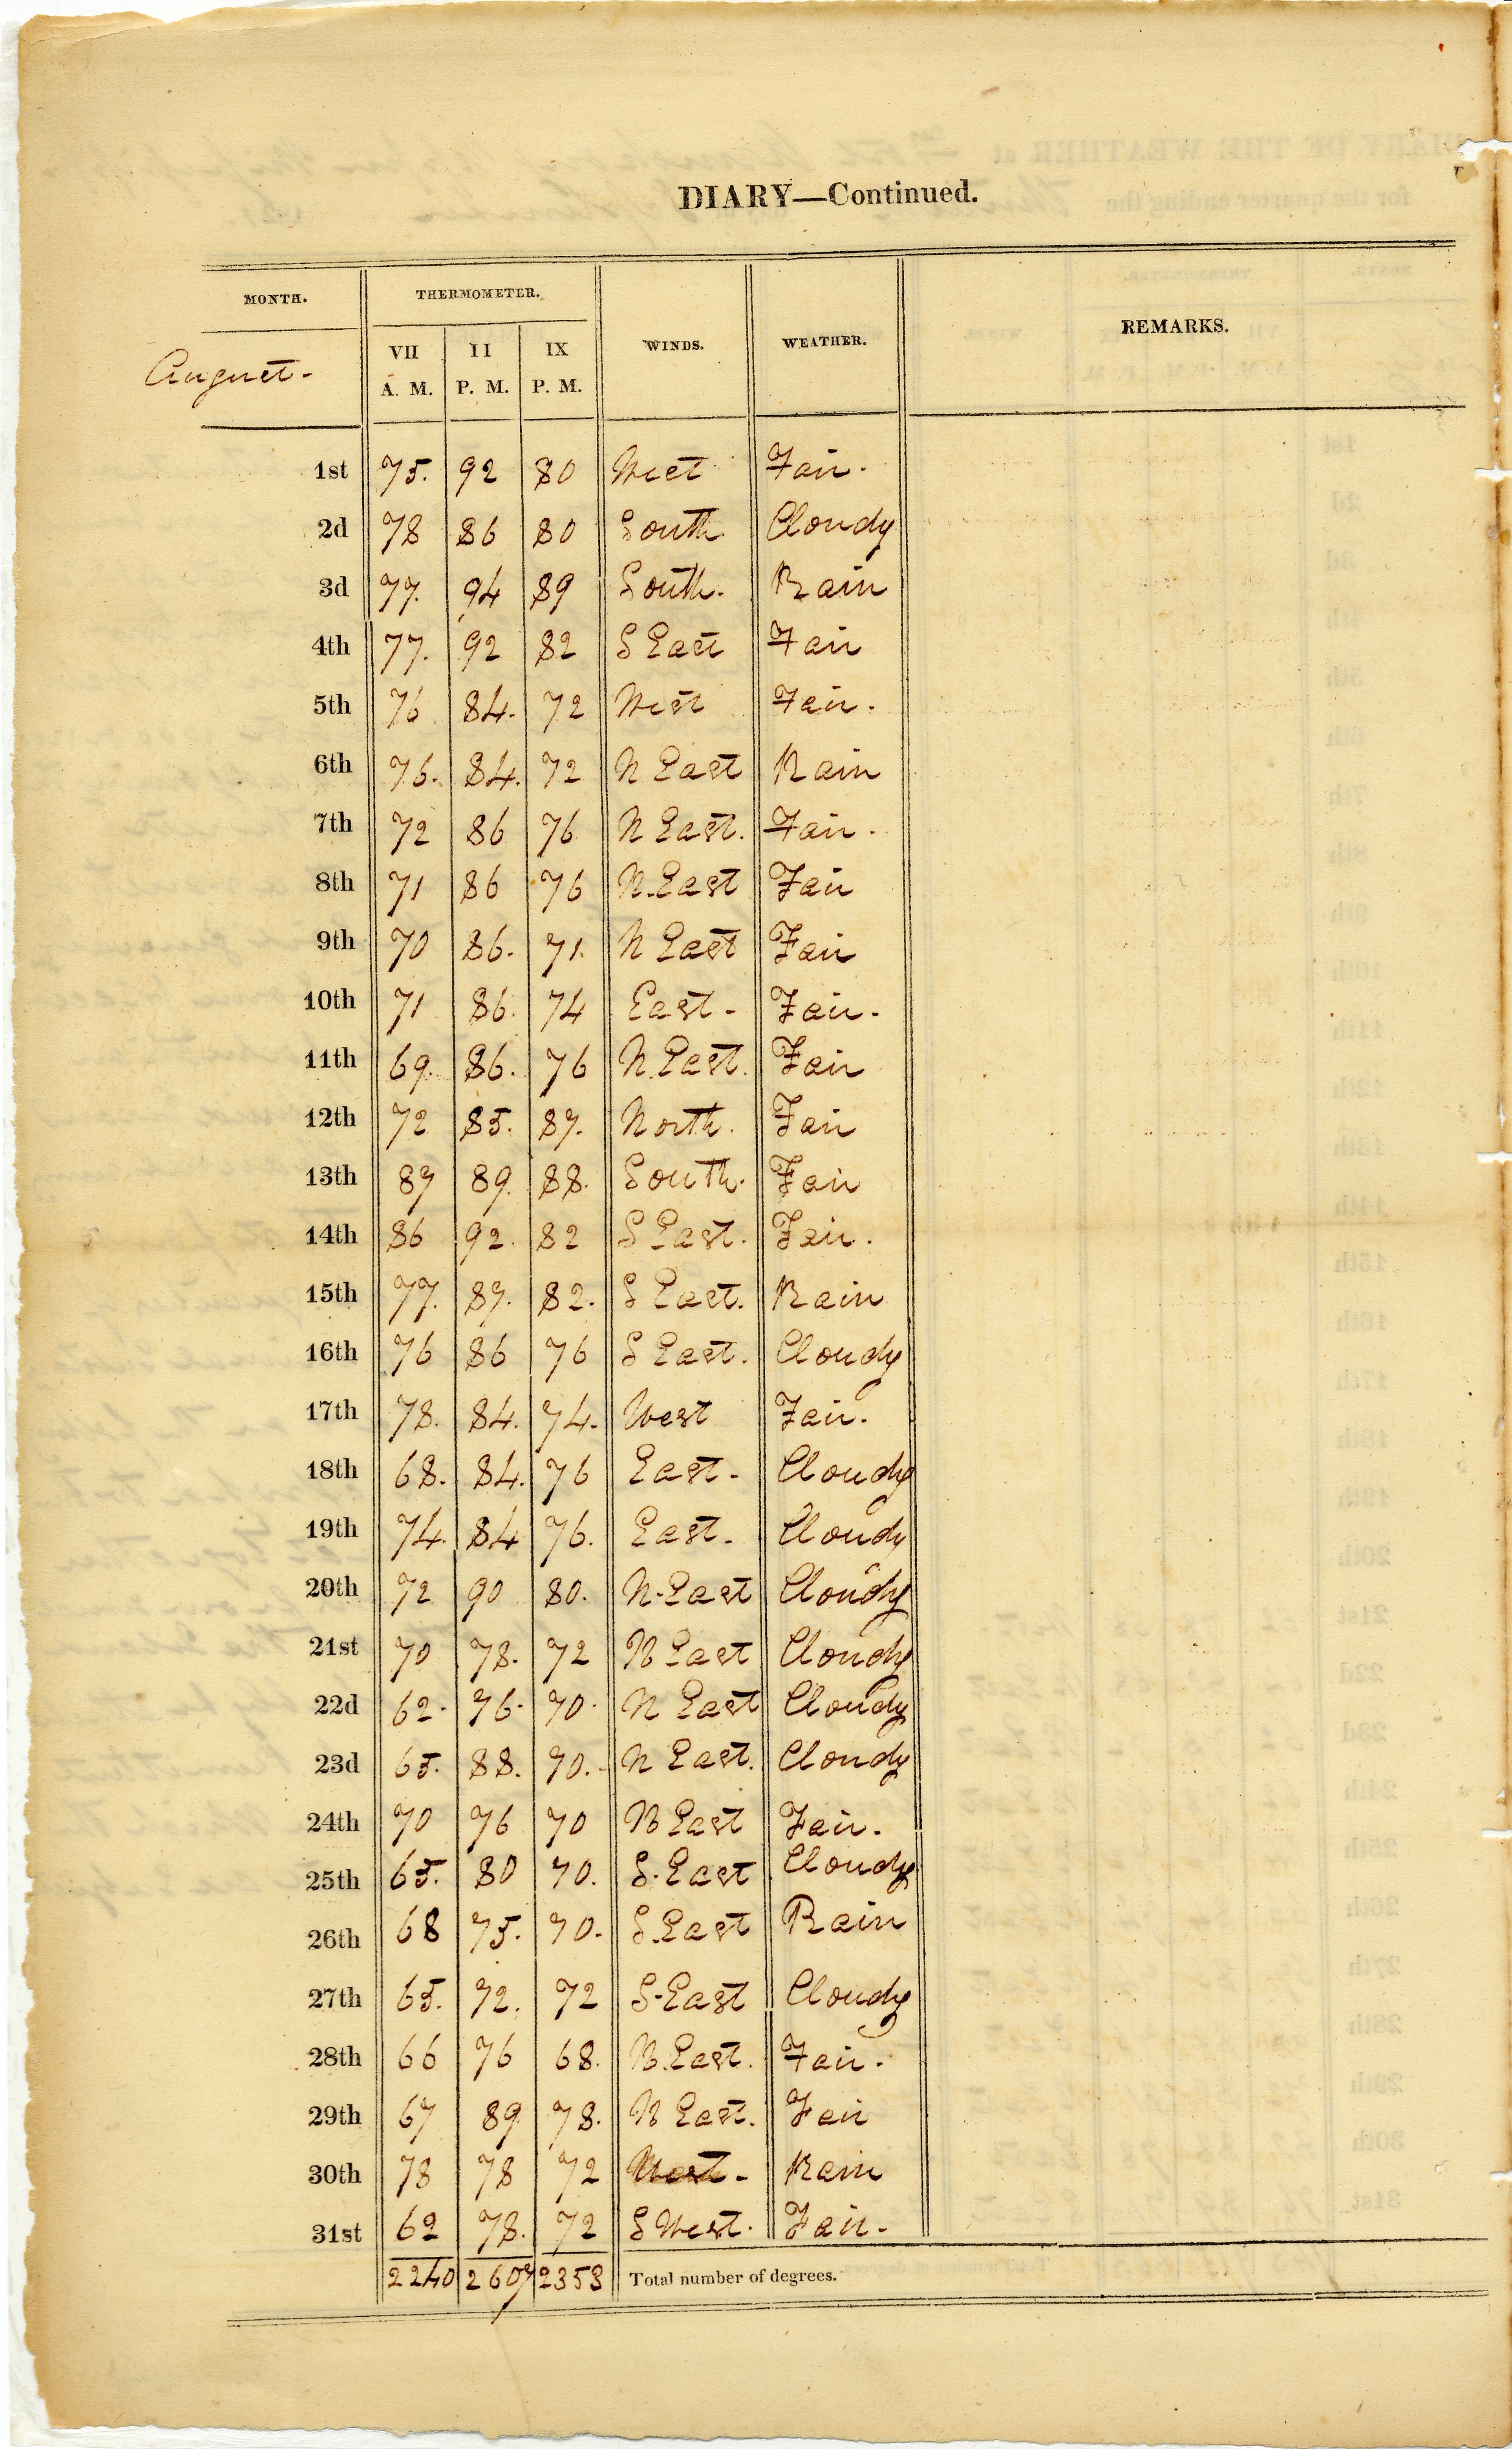 DIARY—Continued.
MONTH. THERMOMETER. WINDS. WEATHER. REMARKS.
August- VII II IX
A. M. P. M. P. M.
1st 75. 92 80 West Fair.
2d 78 86 80 South. Cloudy
3d 77. 94 89 South. Rain
4th 77. 92 82 S East Fair
5th 76 84. 72 West Fair.
6th 76. 84. 72 N East Rain
7th 72 86 76 N East. Fair.
8th 71 86 76 N. East Fair
9th 70 86. 71. N East Fair
10th 71 86. 74 East- Fair.
11th 69. 86. 76 N. East. Fair
12th 72 85. 87. North. Fair
13th 87 89. 88. South. Fair
14th 86 92. 82 S East. Fair.
15th 77. 87. 82. S East. Rain
16th 76 86 76 S East. Cloudy
17th 78. 84. 74. West Fair.
18th 68. 84. 76 East- Cloudy
19th 74. 84 76. East- Cloudy
20th 72 90 80. N-East Cloudy
21st 70 78. 72 N East Cloudy
22d 62. 76. 70. N East Cloudy
23d 65. 88. 70. N East. Cloudy
24th 70 76 70 N East Fair.
25th 65. 80 70. S. East Cloudy
26th 68 75. 70. S. East Rain
27th 65. 72. 72 S-East Cloudy
28th 66 76 68. N. East. Fair.
29th 67 89 78. N East. Fair
30th 78 78 72 West- Rain
31st 62 78. 72 S West. Fair-
2240 2607 2353 Total number of degrees.